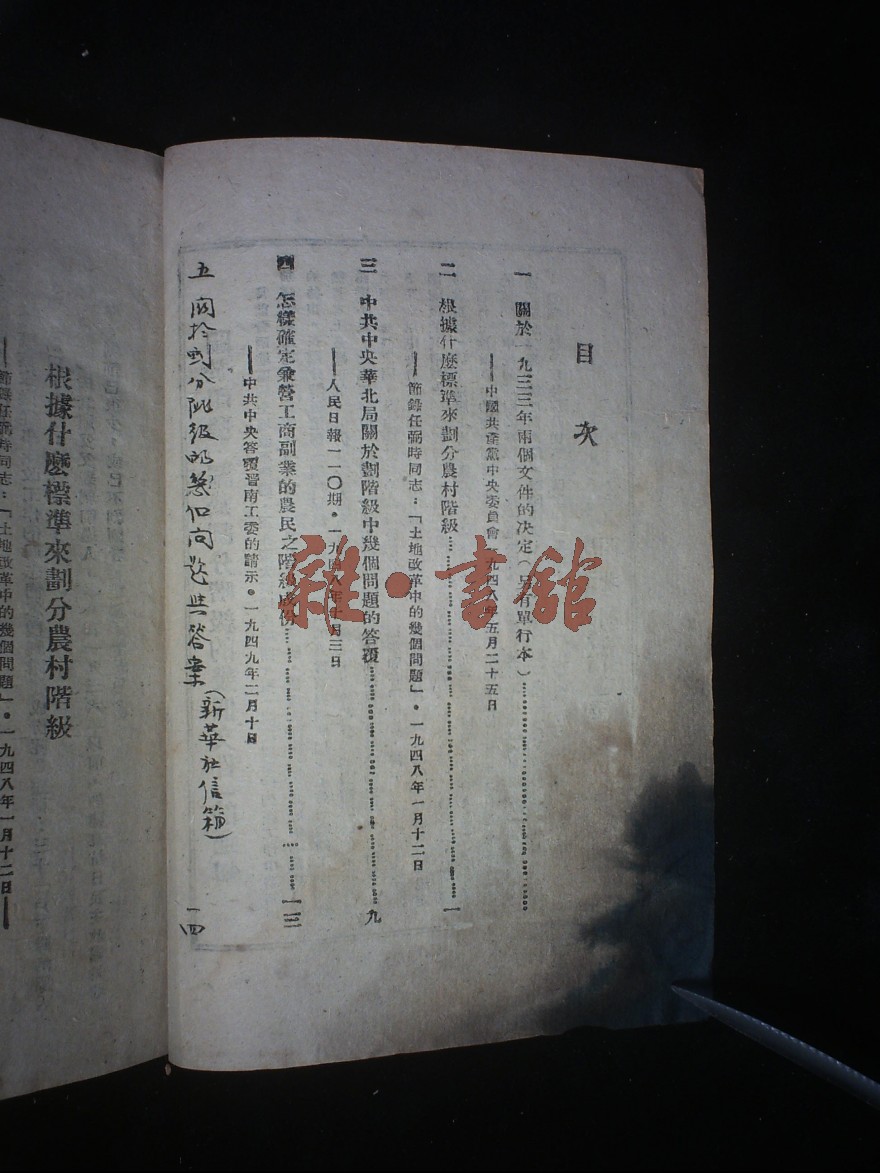 目 次
一 關於一九三三年兩個文件的決定(另有單行本)
——中國共產黨中央委員會一九四八年五月二十五日
二 根據什麼標準來劃分農村階級 一
——節錄任弼時同志：「土地改革中的幾個問題」·一九四八年一月十二日
三 中共中央華北局關於劃階級中幾個問題的答覆 九
——人民日報一一〇期·一九四八年十月三日
四 怎樣確定兼營工商副業的農民之階級成份 一三
——中共中央答覆晉南工委的請示·一九四九年二月十日
五 関於劃分階級的幾個問題與答案(新華社信箱) 一四
雜·書館
根據什麼標準來劃分農村階級
——節錄任弼時同志：「土地改革中的幾個問題」·一九四八年一月十二日——